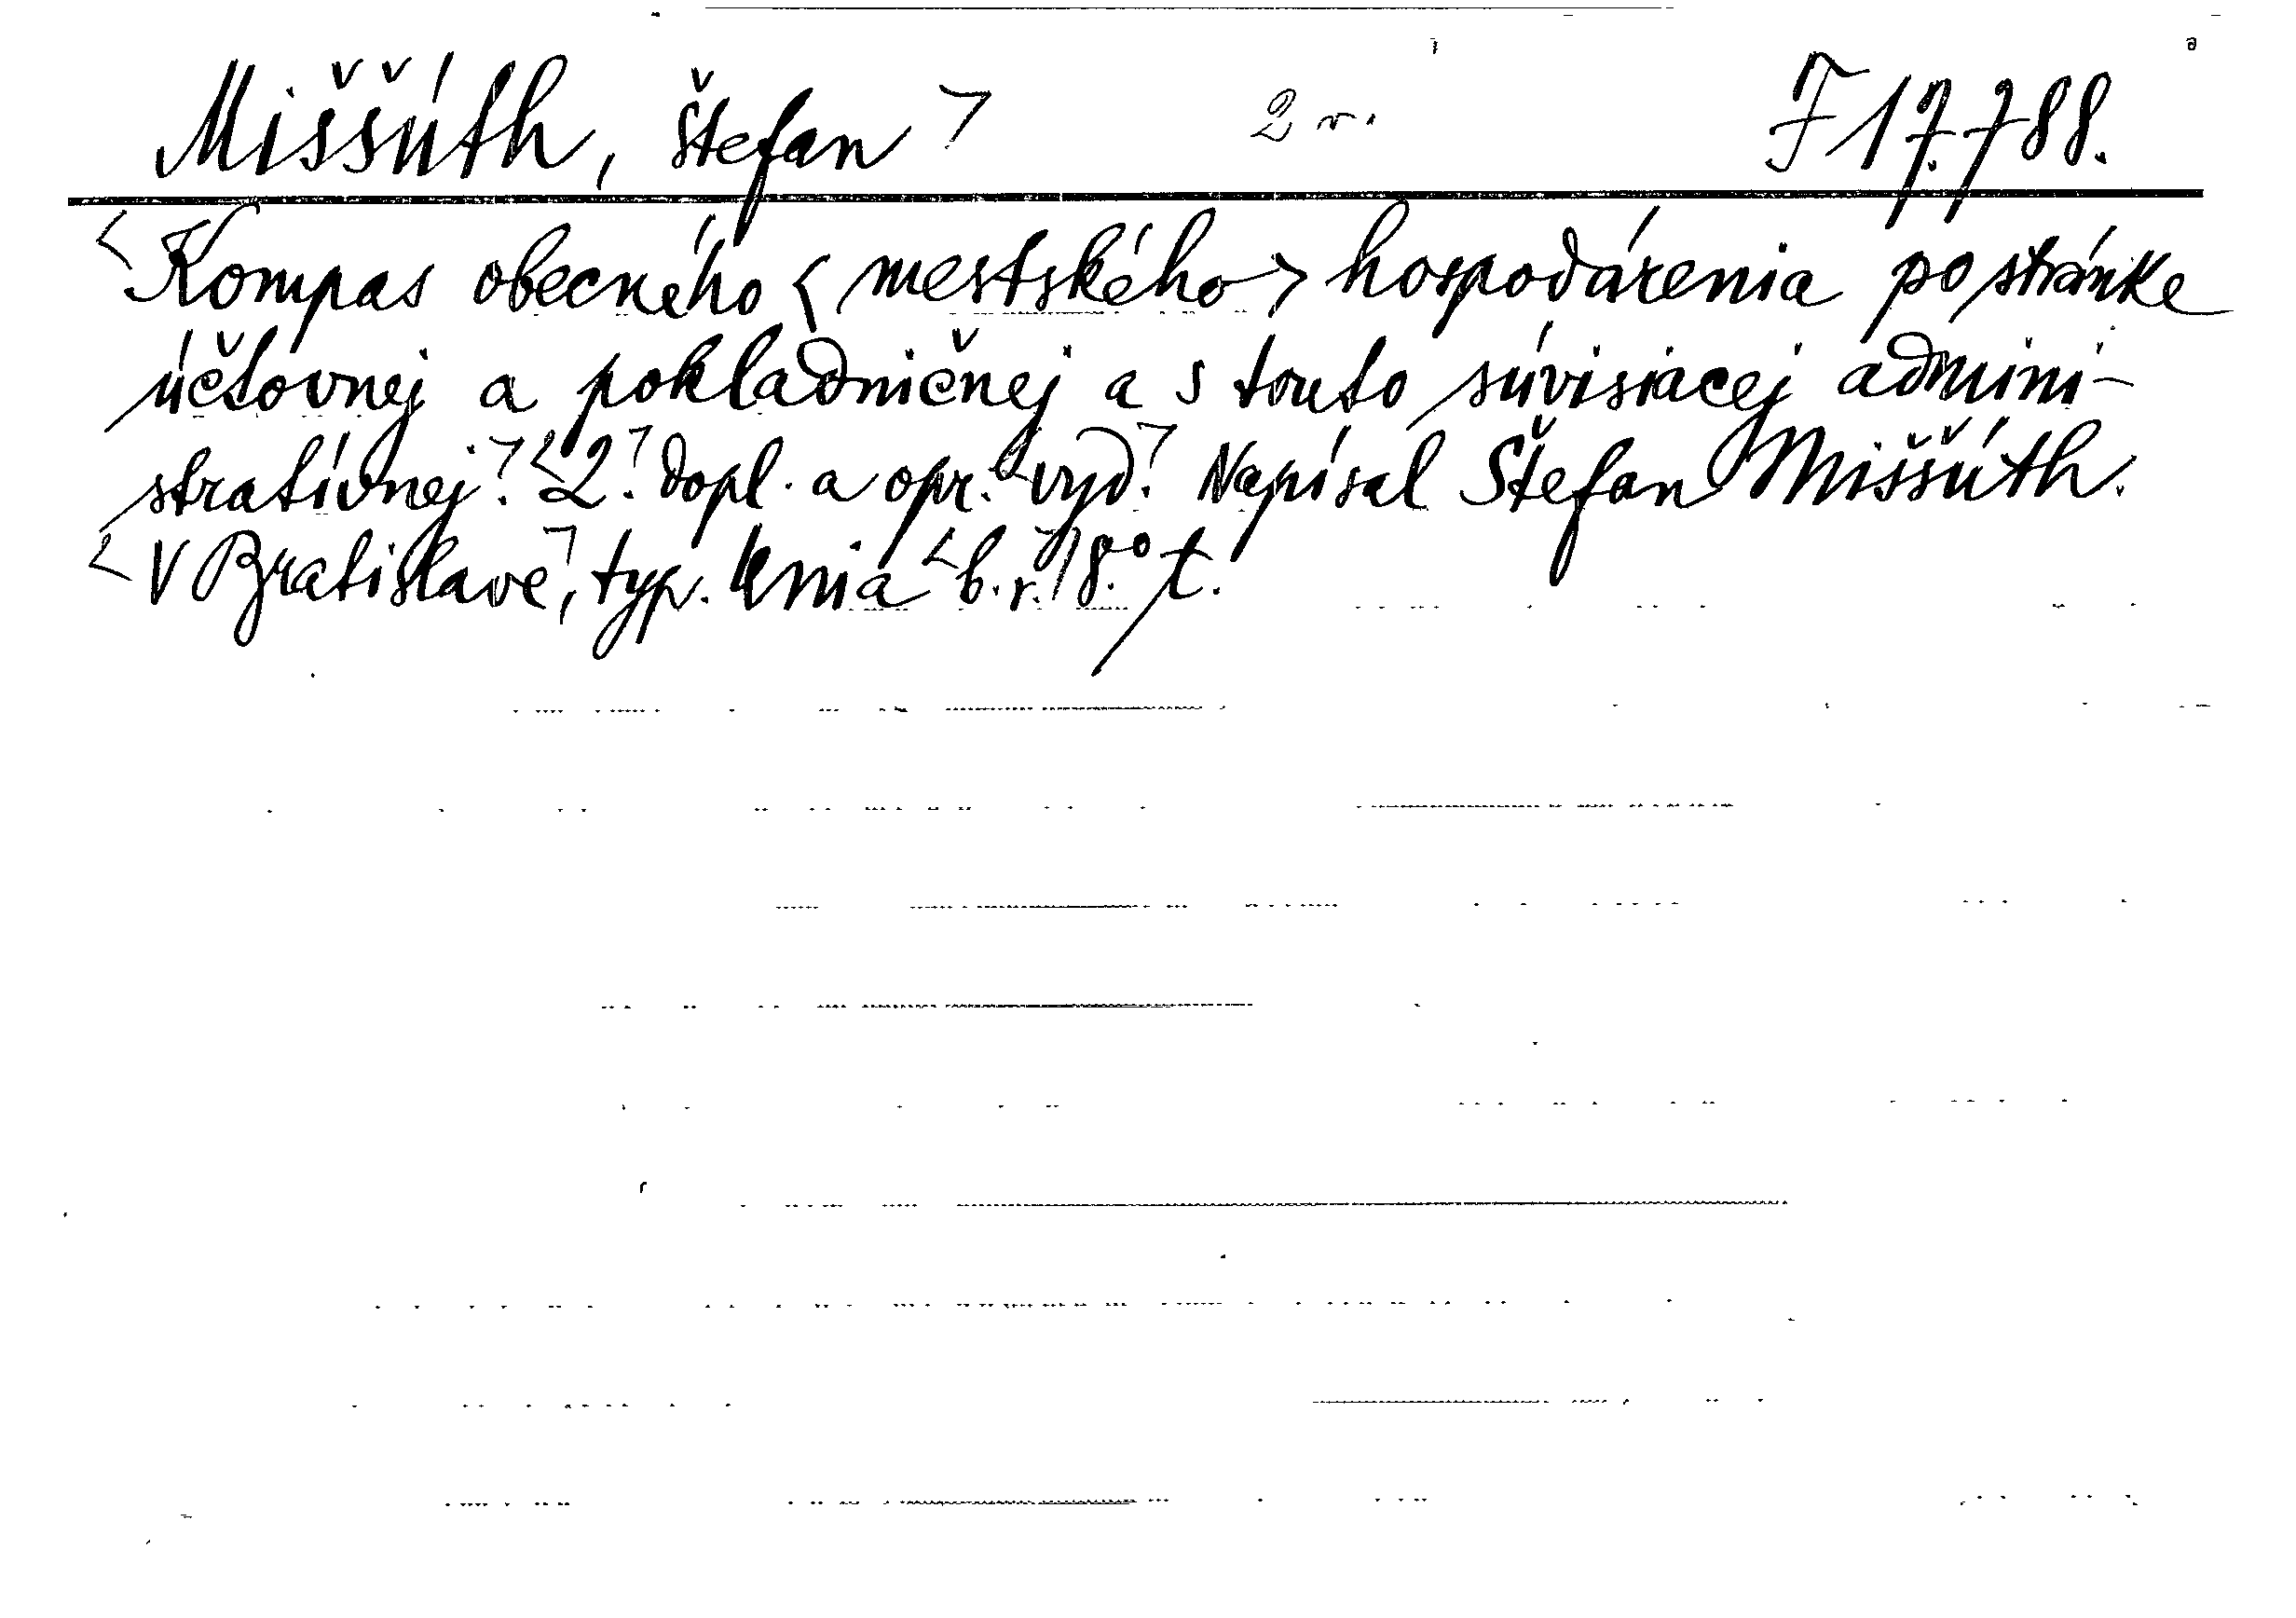 Miššúth, Štefan 2 r. F 17.788.
Kompas obecného <mestského> hospodárenia po stránke
účtovnej a pokladničnej a s touto súvisiacej admini-
stratívnej. 2. dopl. a opr. vyd. Napísal Štefan Miššúth.
V Bratislave, typ. Unia b. r. 8.° t.